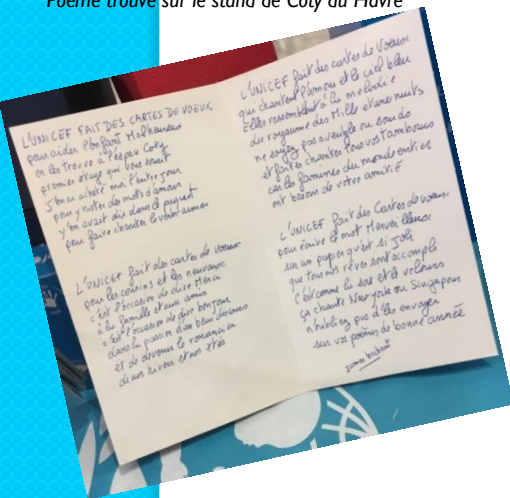 Poème trouvé sur le stand de Coty au Havre
L'UNICEF FAIT DES CARTES DE VOEUX
pour aider l'enfant Malheureux
on les trouve à l'espace Coty
premier étage qui vous sourit
J'en ai acheté ma l'autre jour
pour y noter des mots d'amour
y'en avait dix dans le paquet
pour faire chanter la
L'UNICEF fait des cartes de Voeux
pour les cousins et les neveux
c'est l'occasion de dire Merci
à la famille et aux amis
c'est l'occasion de dire bonjour
dans la passion d'un bleu discours
et de devenir le romancier
de nos hivers et nos étés
L'UNICEF fait des cartes de Voeux
qui chantent l'amour et le ciel bleu
Elles ressemblent à la mélodie
du royaume des Mille et unes nuits
ne soyez pas aveugle ou sourdo
et faites chanter tous vos tambours
car les femmes du monde entier
ont besoin de votre amitié
L'UNICEF fait des Cartes de voeux
pour écrire le mot Merveilleux
sur un papier qu'est si Joli
que tous nos rêves sont accompli
c'est comme la soie et le velours
ça chante New york ou Singapour
n'oubliez pas d'les envoyer
sur vos poèmes de bonne année